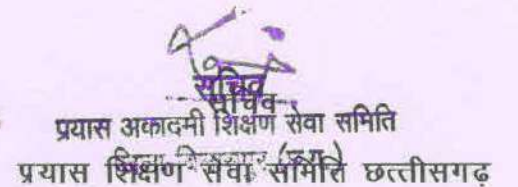 सचिव
सचिव
प्रयास अकादमी शिक्षण सेवा समिति
प्रयास शिक्षण सेवा समिति छत्तीसगढ़